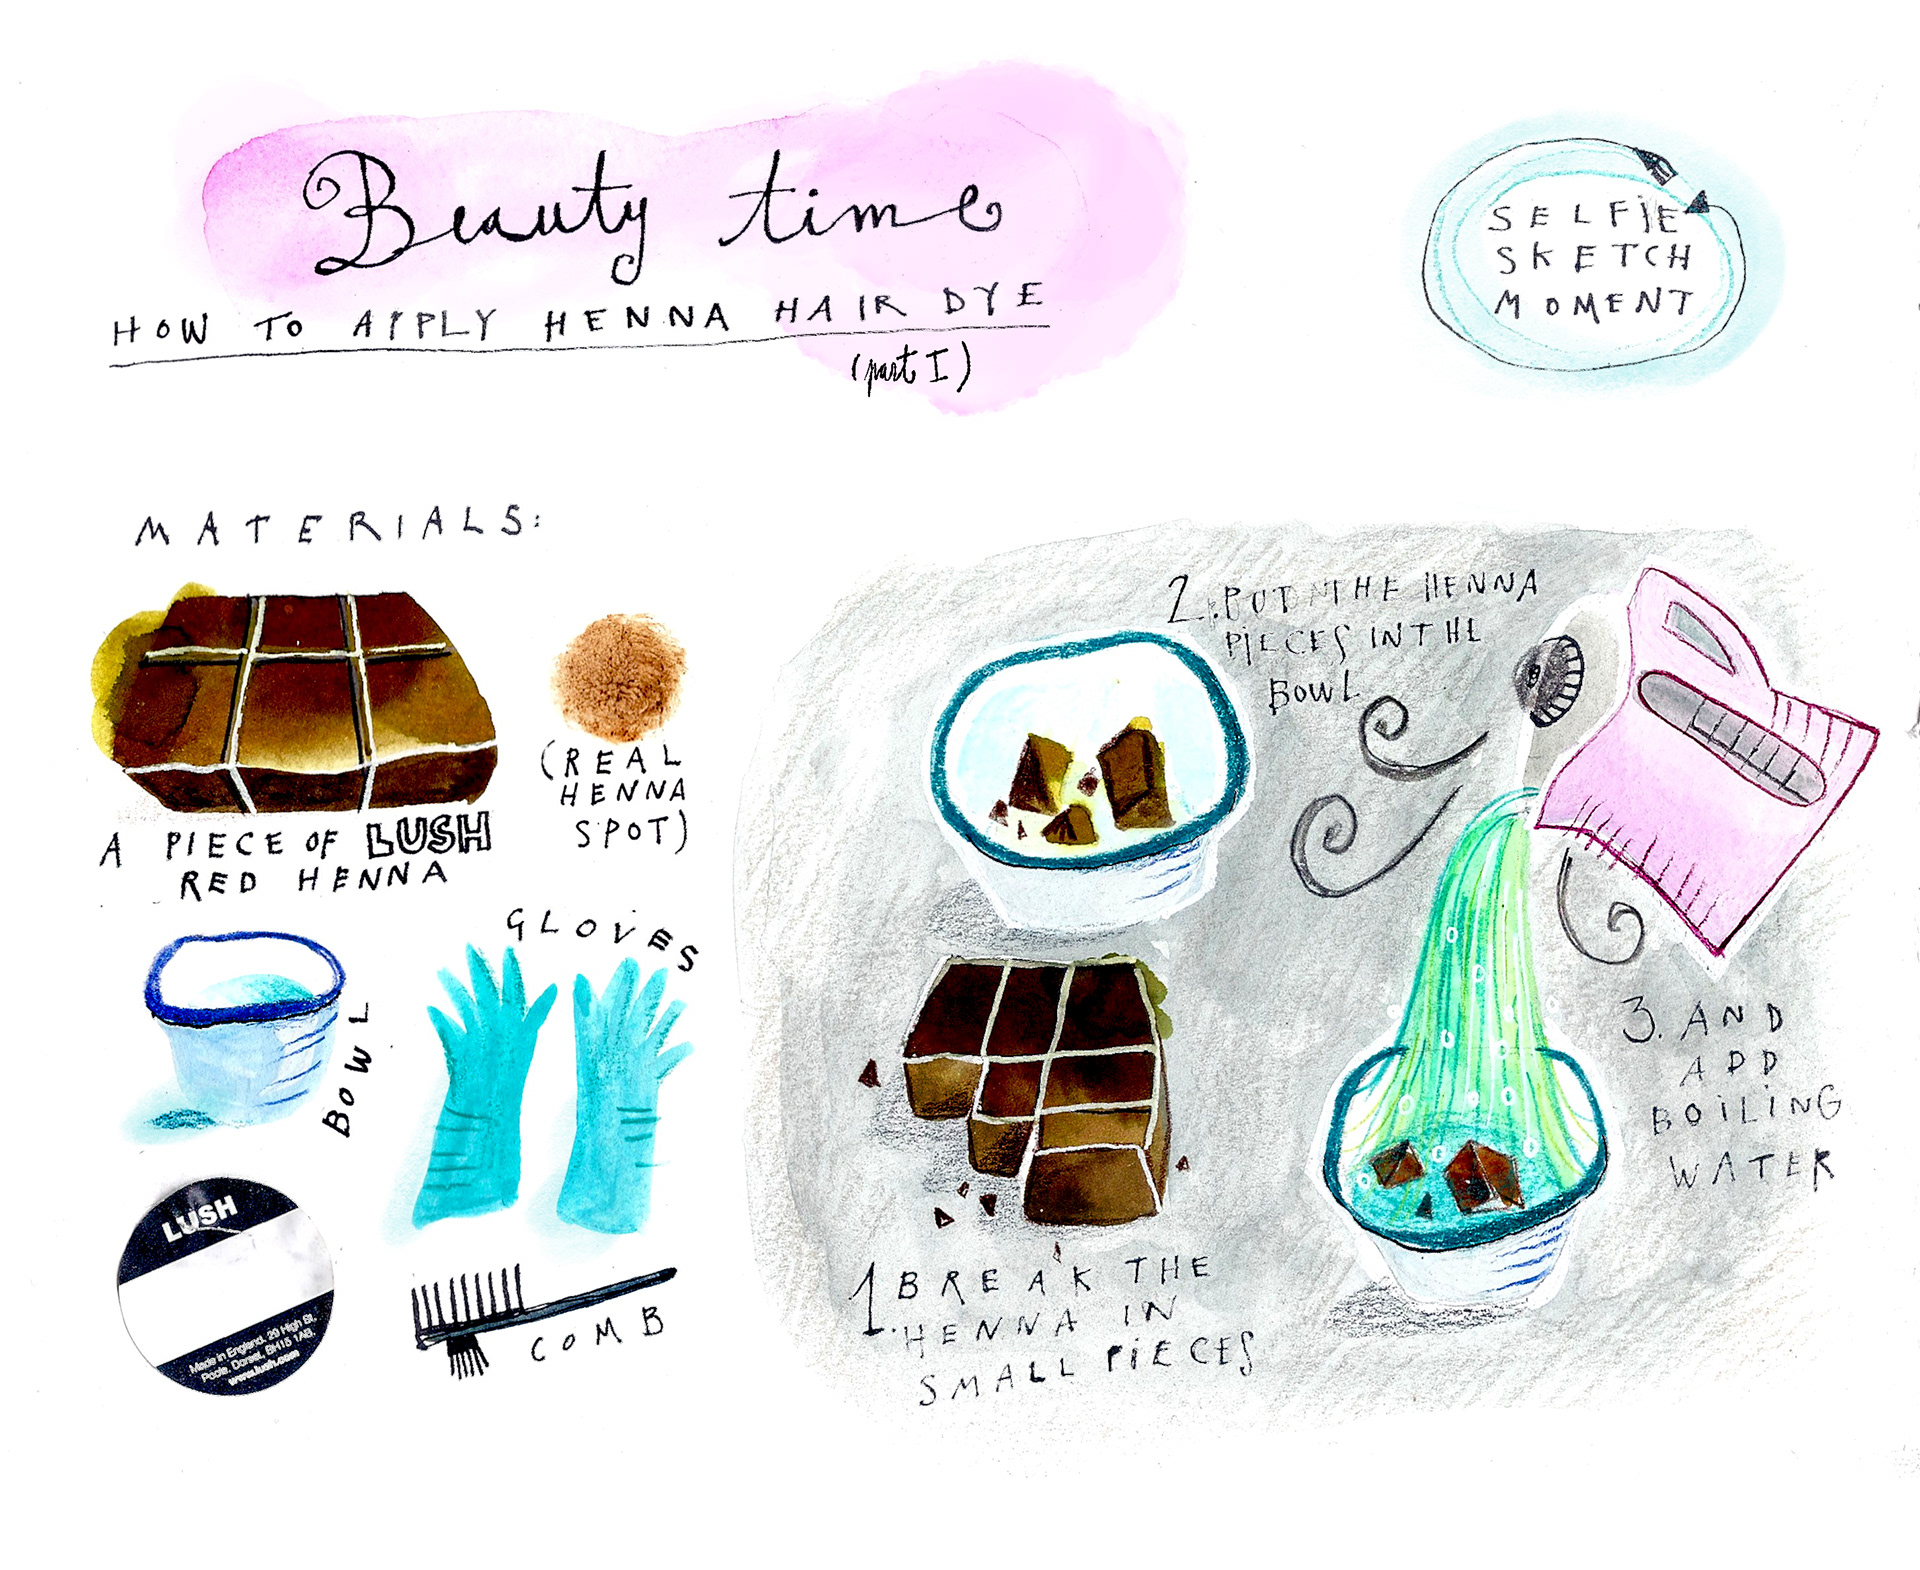 Beauty time
HOW TO APPLY HENNA HAIR DYE
(part I)
SELFIE
SKETCH
MOMENT
MATERIALS:
A PIECE OF LUSH
RED HENNA
(REAL
HENNA
SPOT)
BOWL
GLOVES
LUSH
Made in England. 29 High St.
Poole, Dorset, BH15 1AB.
www.lush.com
COMB
1. BREAK THE
HENNA IN
SMALL PIECES
2. PUT THE HENNA
PIECES IN THE
BOWL
3. AND
ADD
BOILING
WATER